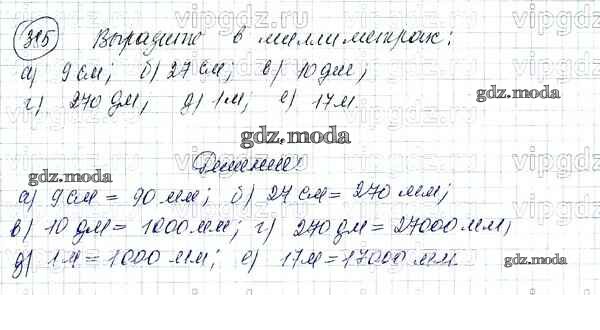 385 Выразите в миллиметрах:
а) 9 см; б) 27 см; в) 10 дм;
г) 270 дм; д) 1м; е) 17м.
gdz.moda
gdz.moda
Решение:
gdz.moda
а) 9 см = 90 мм; б) 27 см = 270 мм;
в) 10 дм = 1000 мм; г) 270 дм = 27000 мм;
д) 1м = 1000 мм; е) 17м = 17000 мм
gdz.moda